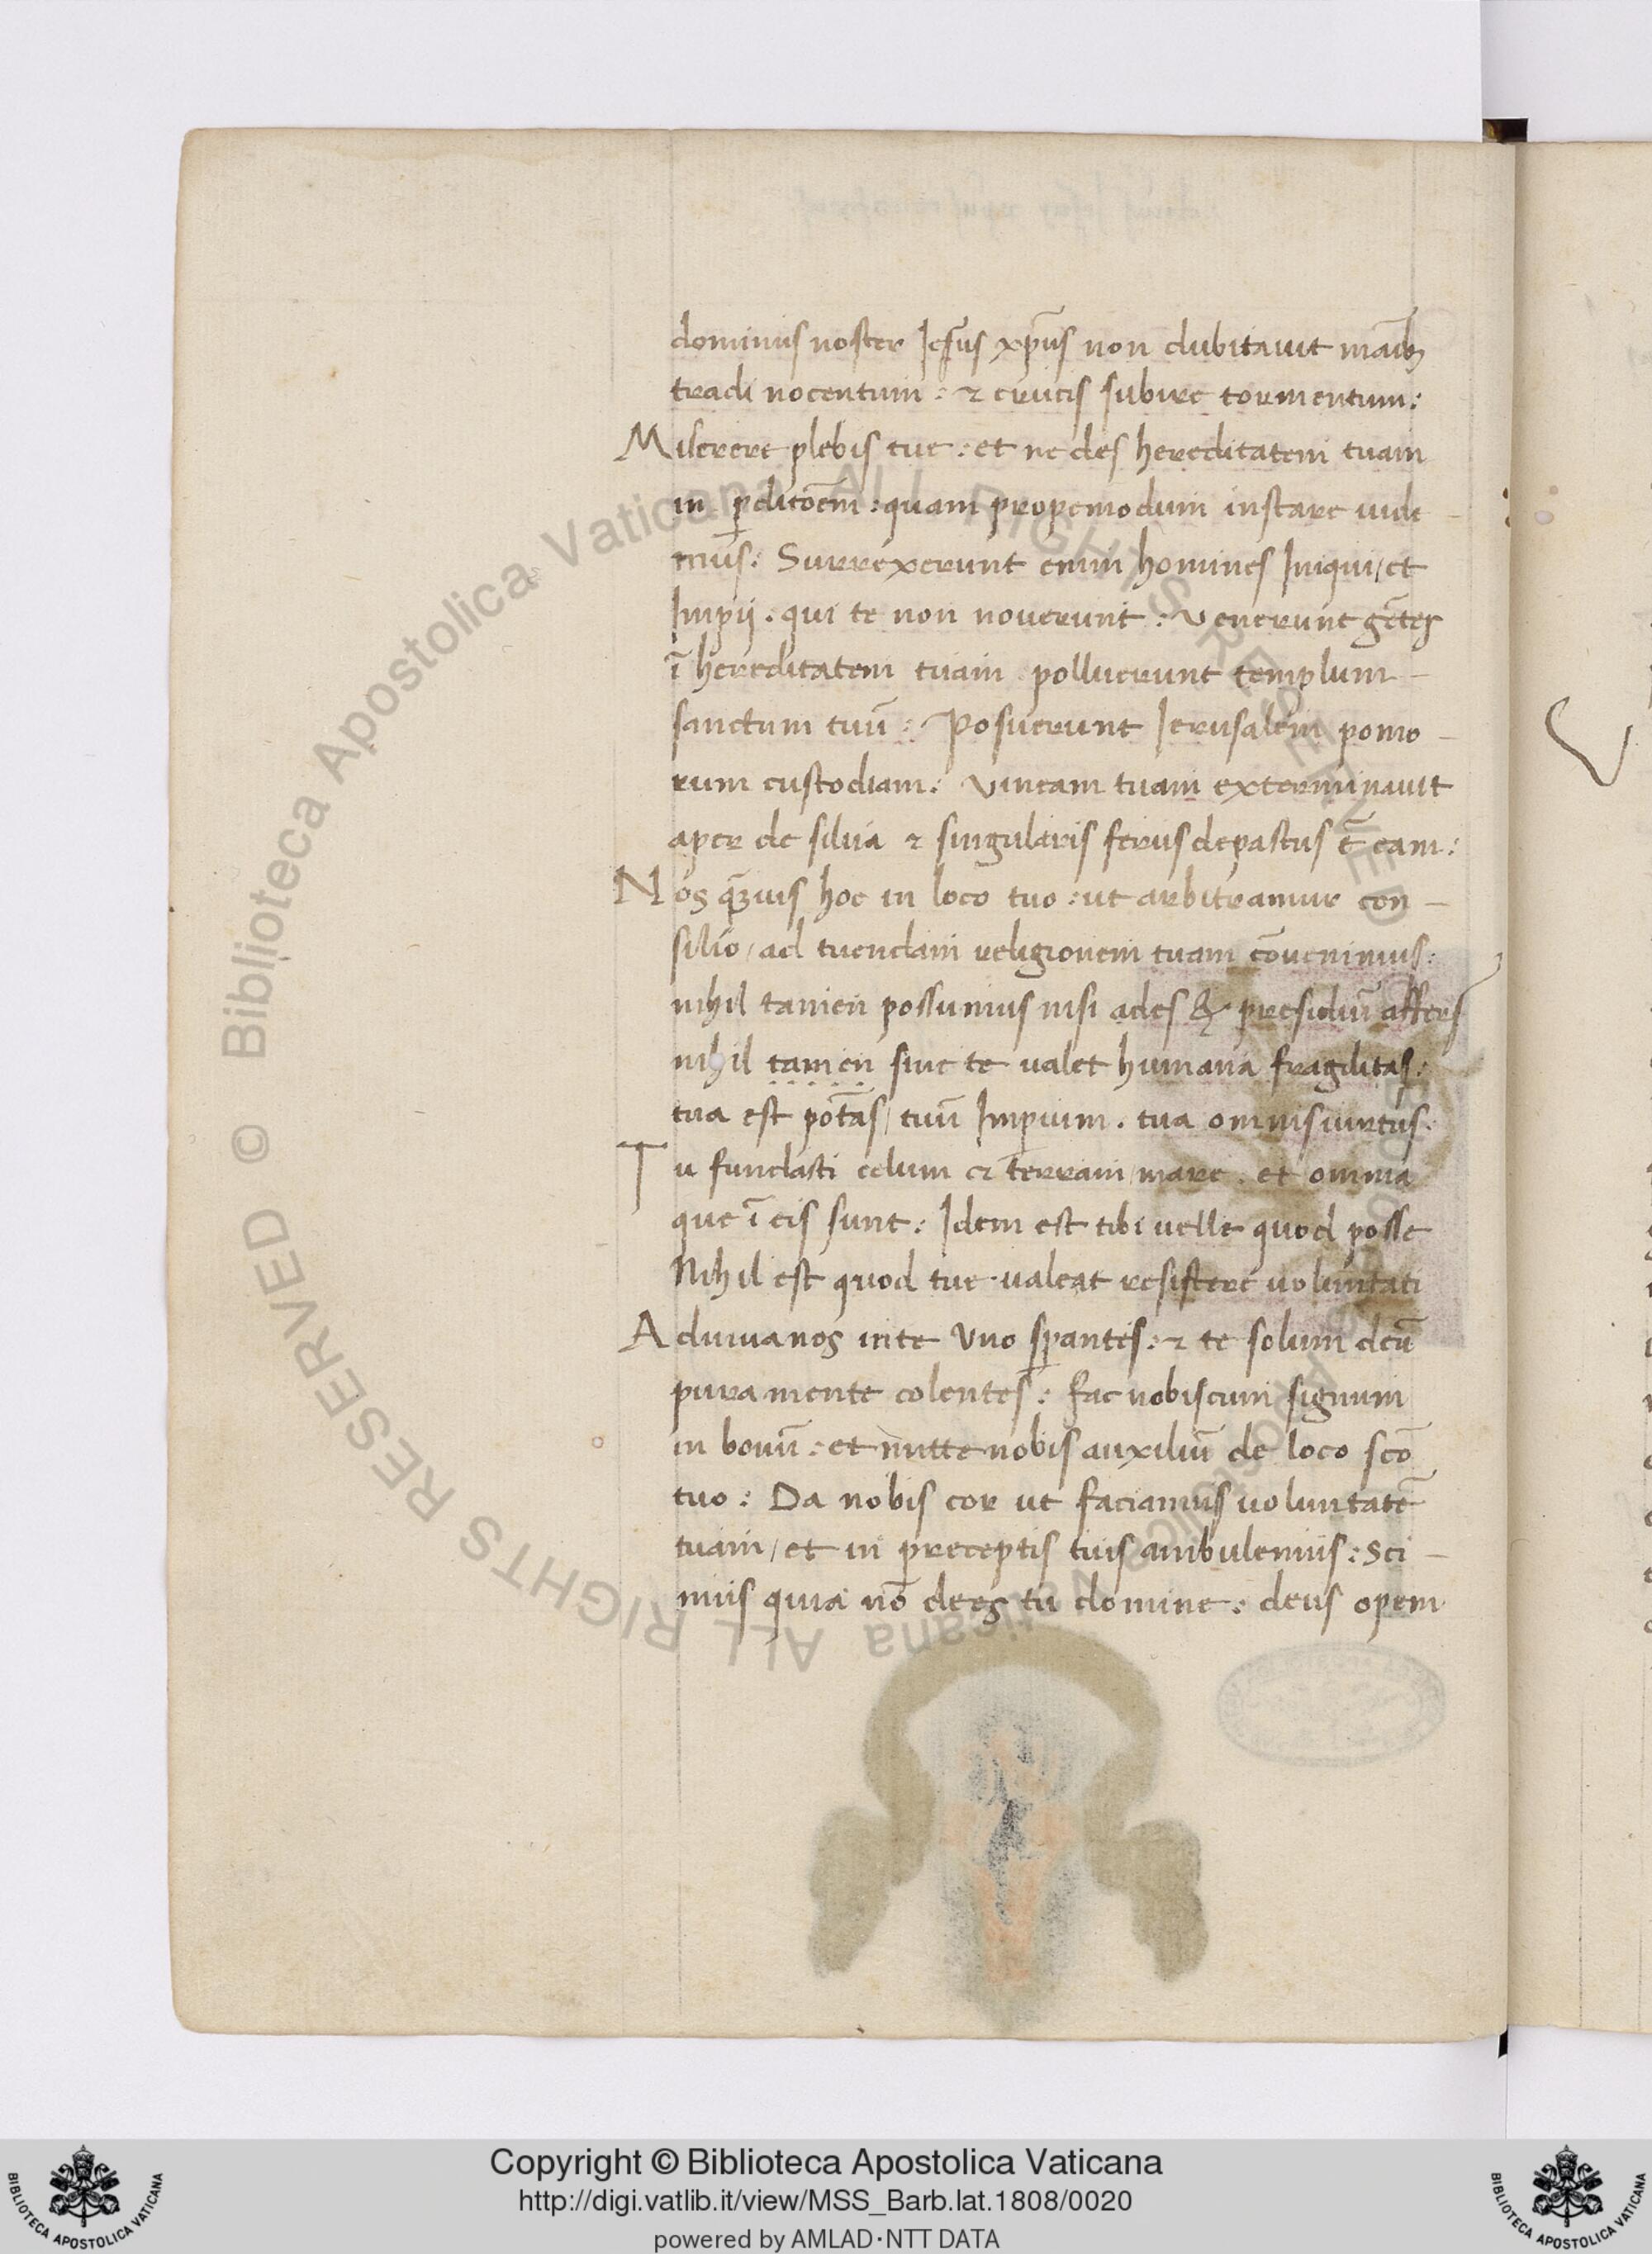 dominus noster Jesus xp̄us non dubitauit manib;
tradi nocentum : ⁊ crucis subire tormentum :
Miserere plebis tue : et ne des hereditatem tuam
in ꝑditōem : quam propemodum instare uide -
mus : Surrexerunt enim homines Iniqui / et
Impij . qui te non nouerunt : Venerunt gētes
ī hereditatem tuam polluerunt templum -
sanctum tuū : Posuerunt Ierusalem pomo -
rum custodiam : Vineam tuam exterminauit
aper de silua ⁊ singularis ferus depastus ē eam :
Nos ꝙuis hoc in loco tuo : ut arbitramur con -
silio / ad tuendam religionem tuam cōuenimus :
nihil tamen possumus nisi ades & presidiū affers
nihil tamen sine te valet humana fragilitas :
tua est potās / tuū Imꝑium . tua omnis uirtus .
Tu fundasti celum et terram / mare . et omnia
que ī eis sunt : Idem est tibi uelle quod posse
Nihil est quod tue ualeat resistere uoluntati
Adiuua nos inte Vno sꝑantes : ⁊ te solum deū
pura mente colentes : fac nobiscum signum
in bonū : et mitte nobis auxiliū de loco scō
tuo : Da nobis cor ut faciamus uoluntatē
tuam / et in preceptis tuis ambulemus : Sci -
mus quia nō dees tu domine : deus opem
Copyright © Biblioteca Apostolica Vaticana
http://digi.vatlib.it/view/MSS_Barb.lat.1808/0020
powered by AMLAD·NTT DATA
© Biblioteca Apostolica Vaticana ALL RIGHTS RESERVED
BIBLIOTECA APOSTOLICA VATICANA
BIBLIOTECA APOSTOLICA VATICANA